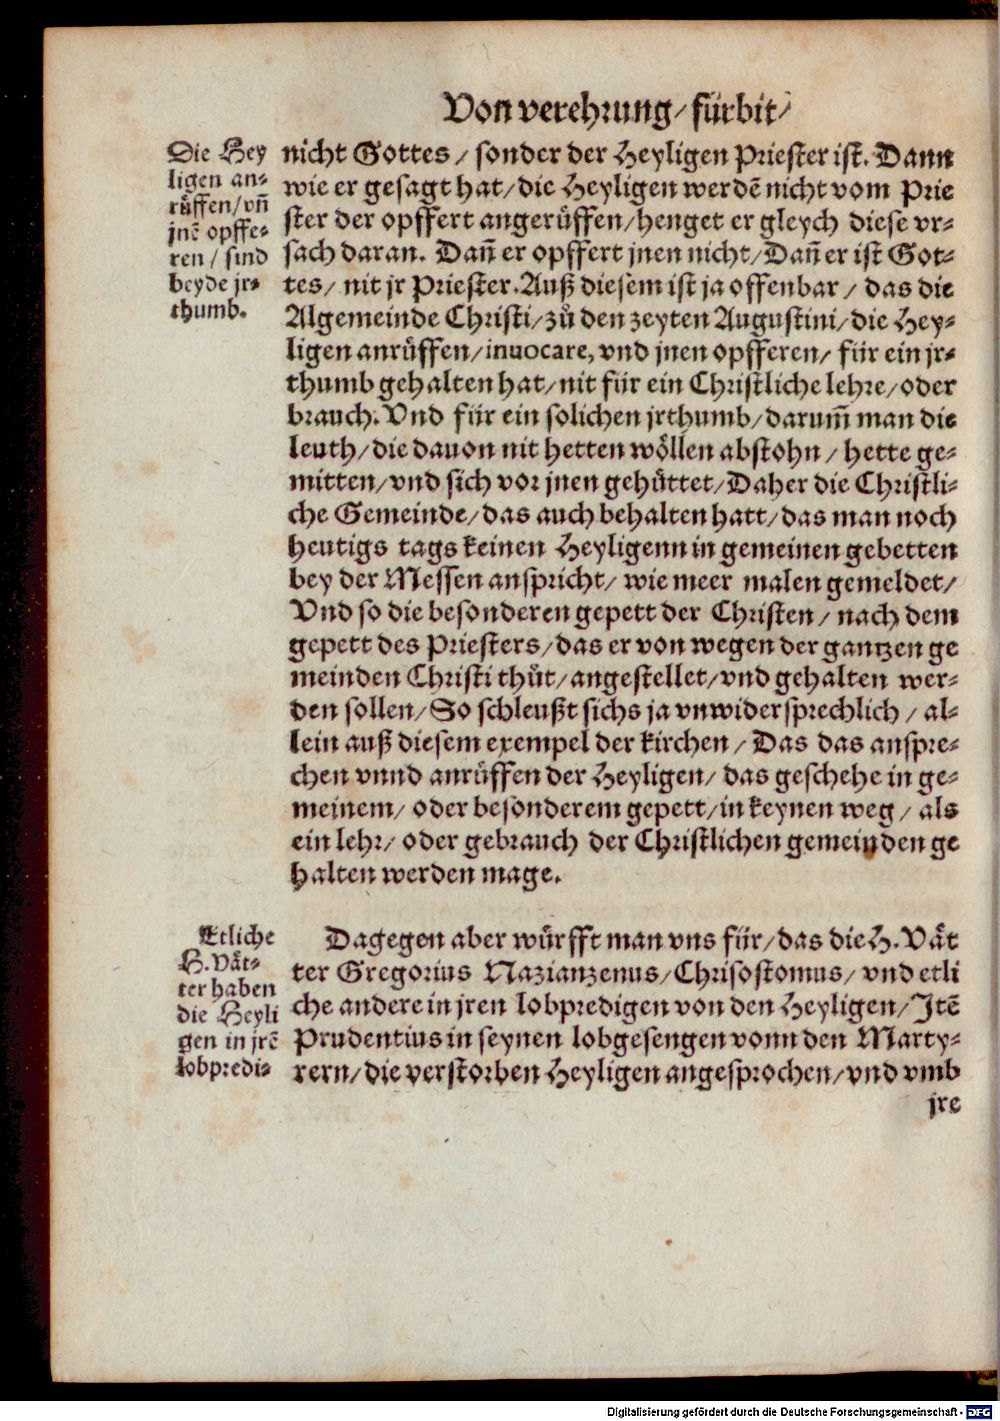 Von verehrung/ fürbit/
Die Hey
ligen an⸗
rüffen/ vñ
jnẽ opffe⸗
ren/ sind
beyde jr⸗
thumb.
nicht Gottes/ sonder der Heyligen Priester ist. Dann
wie er gesagt hat/ die Heyligen werdẽ nicht vom Prie
ster der opffert angerüffen/ henget er gleych diese vr⸗
sach daran. Dañ er opffert jnen nicht/ Dañ er ist Got⸗
tes/ nit jr Priester. Auß diesem ist ja offenbar/ das die
Algemeinde Christi/ zů den zeyten Augustini/ die Hey⸗
ligen anrüffen/ inuocare, vnd jnen opfferen/ für ein jr⸗
thumb gehalten hat/ nit für ein Christliche lehre/ oder
brauch. Vnd für ein solichen jrthumb/ darum̃ man die
leuth/ die dauon nit hetten wöllen abstohn/ hette ge⸗
mitten/ vnd sich vor jnen gehüttet/ Daher die Christli⸗
che Gemeinde/ das auch behalten hatt/ das man noch
heutigs tags keinen Heyligenn in gemeinen gebetten
bey der Messen anspricht/ wie meer malen gemeldet/
Vnd so die besonderen gepett der Christen/ nach dem
gepett des Priesters/ das er von wegen der gantzen ge
meinden Christi thůt/ angestellet/ vnd gehalten wer⸗
den sollen/ So schleußt sichs ja vnwidersprechlich/ al⸗
lein auß diesem exempel der kirchen/ Das das anspre⸗
chen vnnd anrüffen der Heyligen/ das geschehe in ge⸗
meinem/ oder besonderem gepett/ in keynen weg/ als
ein lehr/ oder gebrauch der Christlichen gemeinden ge
halten werden mage.
Etliche
H. Vät⸗
ter haben
die Heyli
gen in jrẽ
lobpredi⸗
Dagegen aber würfft man vns für/ das die H. Vät
ter Gregorius Nazianzenus/ Chrisostomus/ vnd etli
che andere in jren lobpredigen von den Heyligen/ Itẽ
Prudentius in seynen lobgesengen vonn den Marty⸗
rern/ die verstorben Heyligen angesprochen/ vnd vmb
jre
Digitalisierung gefördert durch die Deutsche Forschungsgemeinschaft - DFG